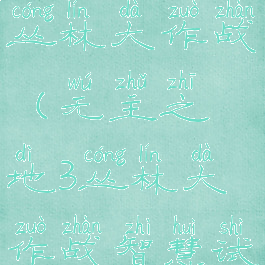 cóng lín dà zuò zhàn
丛林大作战
wú zhǔ zhī
（无主之
dì cóng lín dà
地3丛林大
zuò zhàn zhì huì shì
作战智慧试